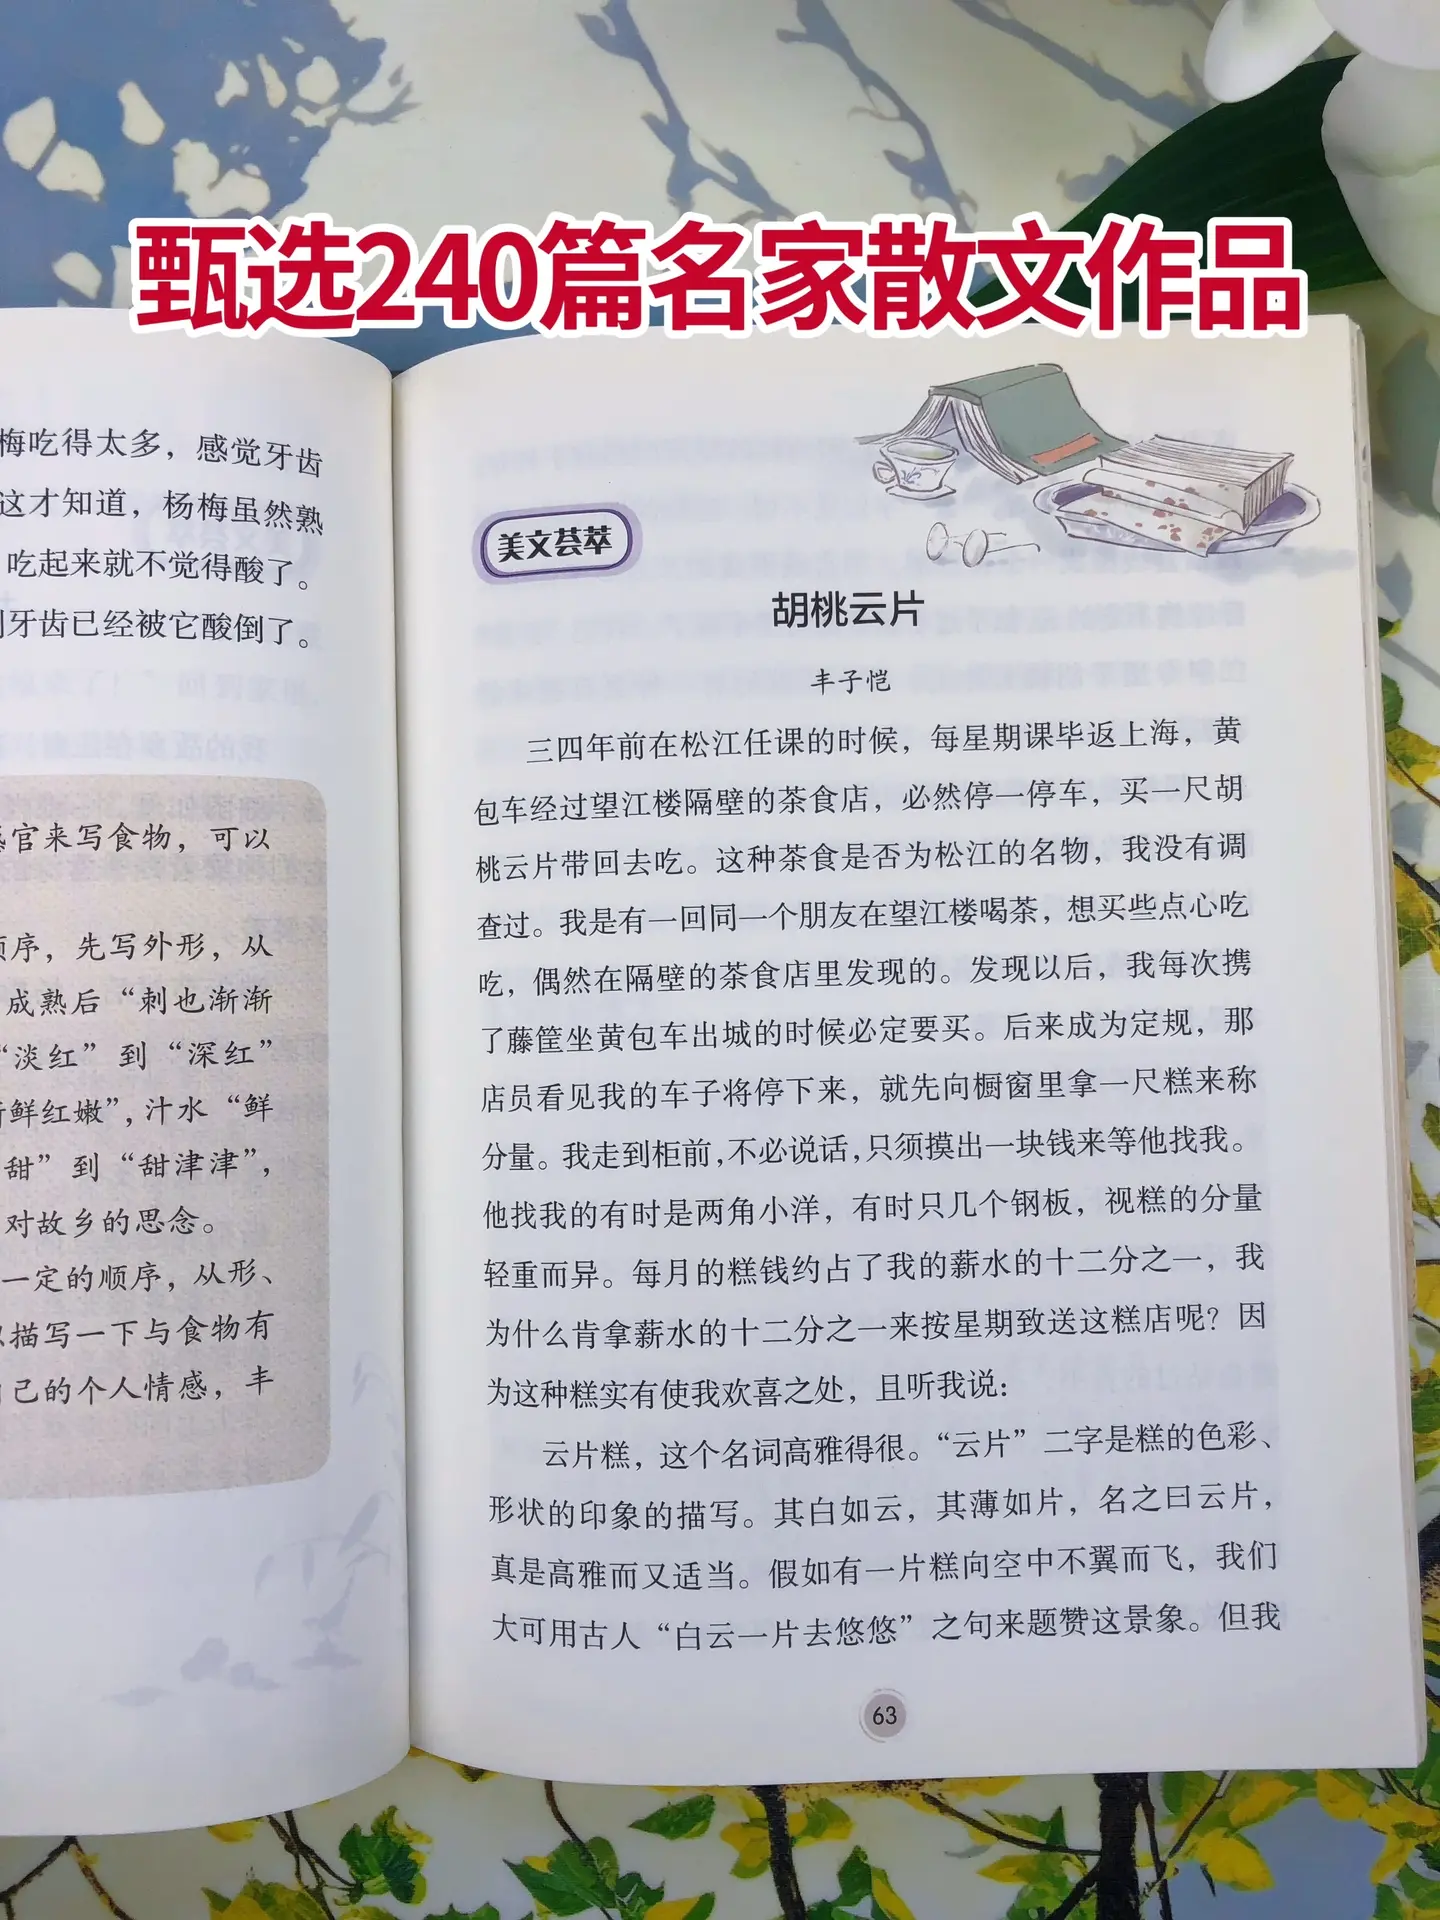 甄选240篇名家散文作品
梅吃得太多，感觉牙齿
这才知道，杨梅虽然熟
吃起来就不觉得酸了。
牙齿已经被它酸倒了。
官来写食物，可以
序，先写外形，从
成熟后“刺也渐渐
“淡红”到“深红”
鲜红嫩”，汁水“鲜
甜”到“甜津津”，
对故乡的思念。
一定的顺序，从形、
描写一下与食物有
己的个人情感，丰
美文荟萃
胡桃云片
丰子恺
三四年前在松江任课的时候，每星期课毕返上海，黄
包车经过望江楼隔壁的茶食店，必然停一停车，买一尺胡
桃云片带回去吃。这种茶食是否为松江的名物，我没有调
查过。我是有一回同一个朋友在望江楼喝茶，想买些点心吃
吃，偶然在隔壁的茶食店里发现的。发现以后，我每次携
了藤筐坐黄包车出城的时候必定要买。后来成为定规，那
店员看见我的车子将停下来，就先向橱窗里拿一尺糕来称
分量。我走到柜前，不必说话，只须摸出一块钱来等他找我。
他找我的有时是两角小洋，有时只几个铜板，视糕的分量
轻重而异。每月的糕钱约占了我的薪水的十二分之一，我
为什么肯拿薪水的十二分之一来按星期致送这糕店呢？因
为这种糕实有使我欢喜之处，且听我说：
云片糕，这个名词高雅得很。“云片”二字是糕的色彩、
形状的印象的描写。其白如云，其薄如片，名之曰云片，
真是高雅而又适当。假如有一片糕向空中不翼而飞，我们
大可用古人“白云一片去悠悠”之句来题赞这景象。但我
63